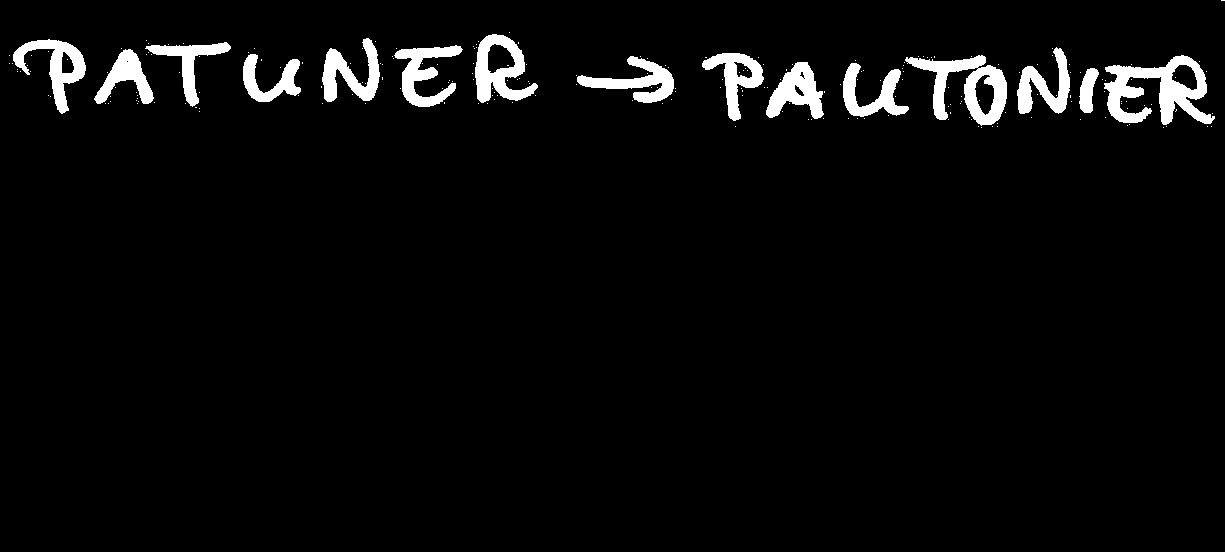 PATUNER → PAUTONIER